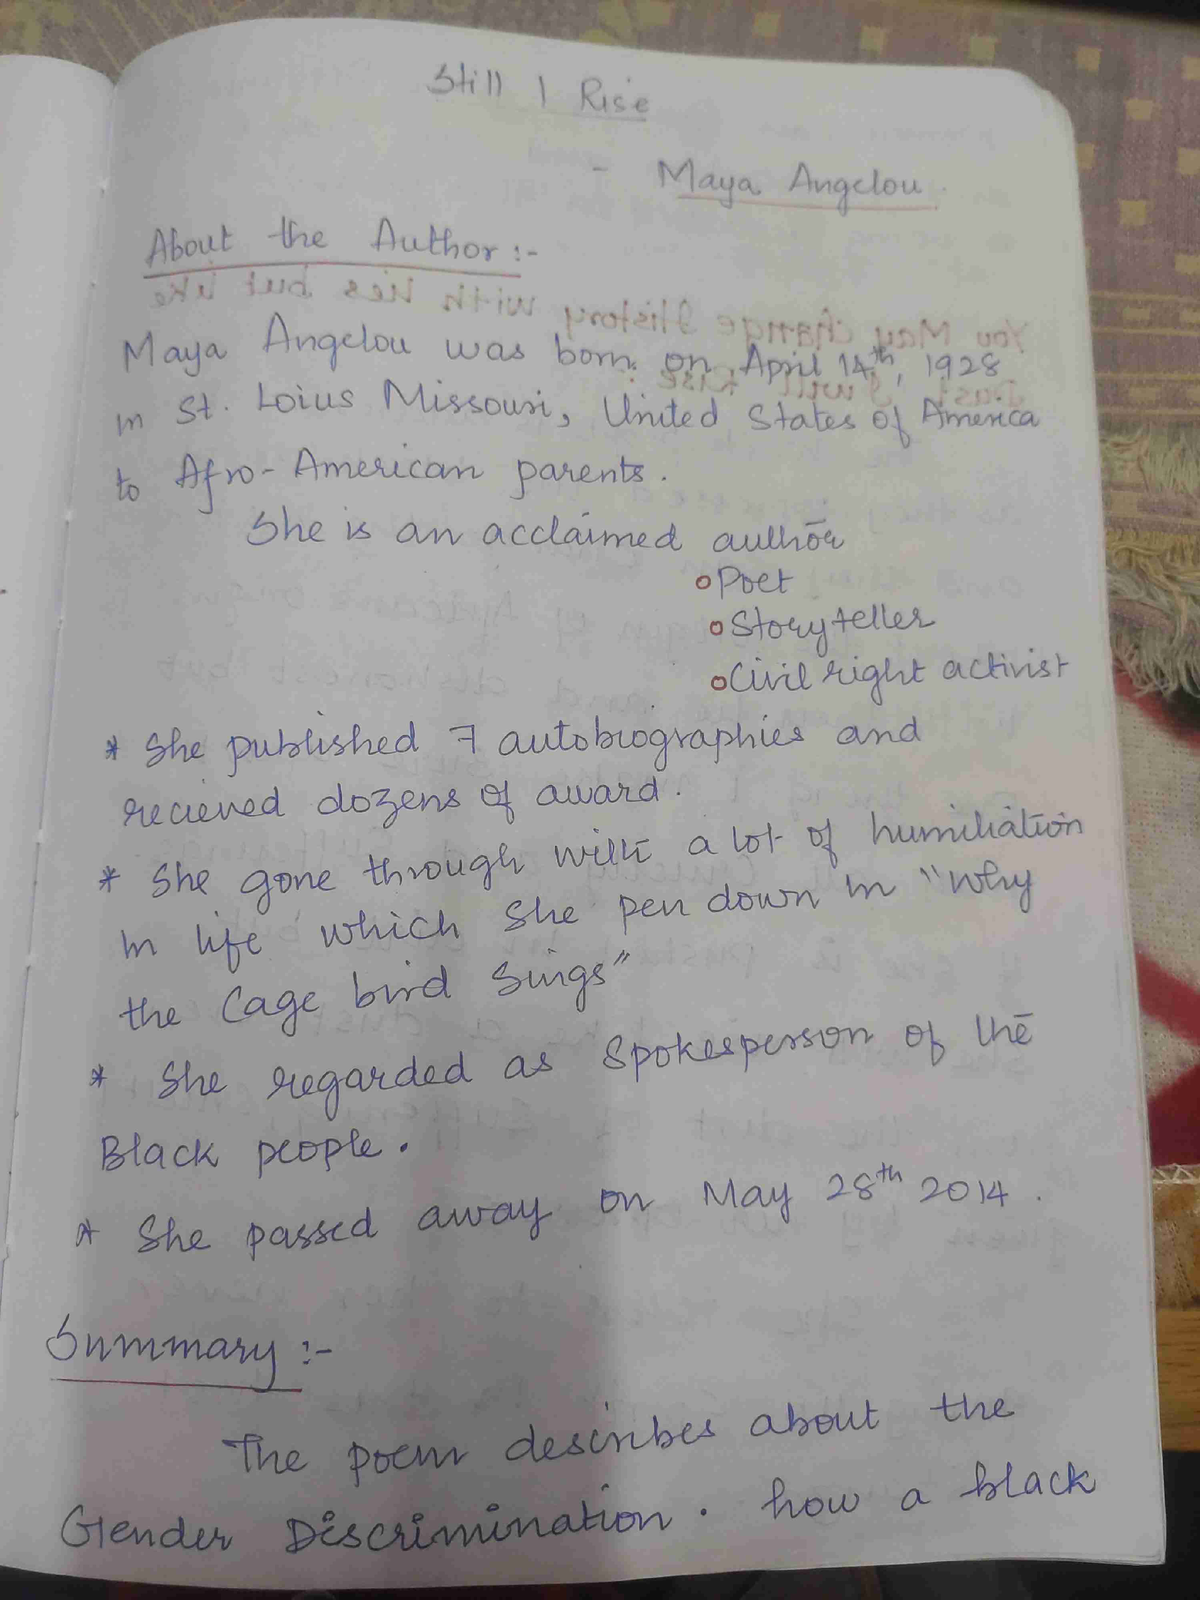 Still I Rise
- Maya Angelou
About the Author :-
Maya Angelou was born on April 14th, 1928
in St. Loius Missouri, United States of America
to Afro-American parents.
She is an acclaimed author
Poet
Storyteller
Civil right activist
* She published 7 autobiographies and
recieved dozens of award.
* She gone through with a lot of humiliation
in life which she pen down in "Why
the Cage bird Sings"
* She regarded as Spokesperson of the
Black people.
* She passed away on May 28th 2014.
Summary :-
The poem describes about the
Gender Discrimination. how a black